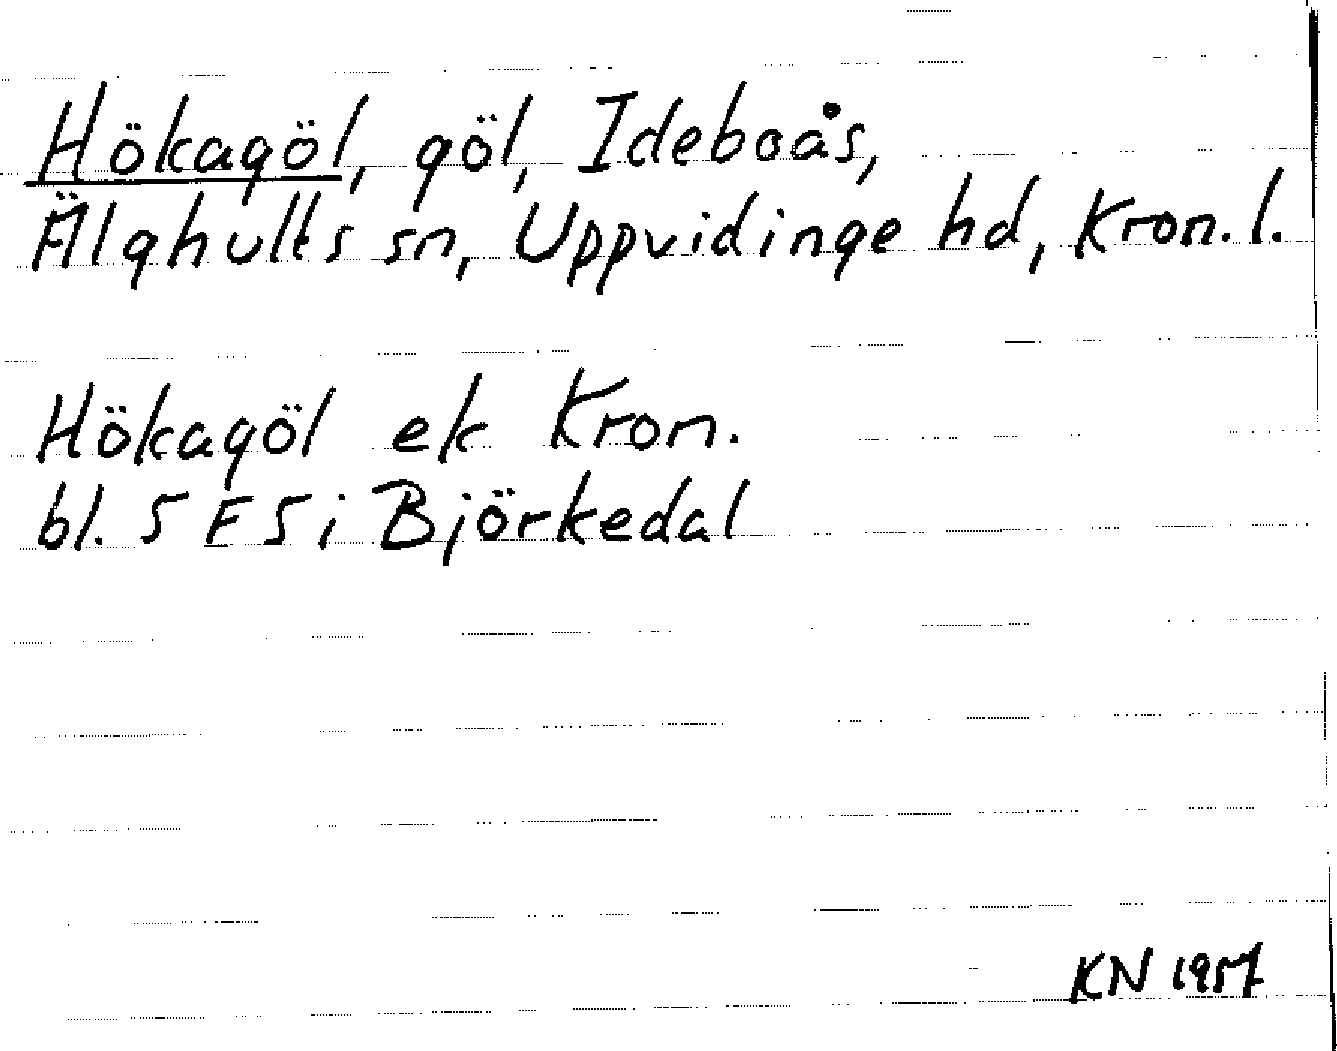 Hökagöl, göl, Ideboås,
Älghults sn, Uppvidinge hd, Kron. l.
Hökagöl ek Kron.
bl. 5 F 5 i Björkedal
KN 1957